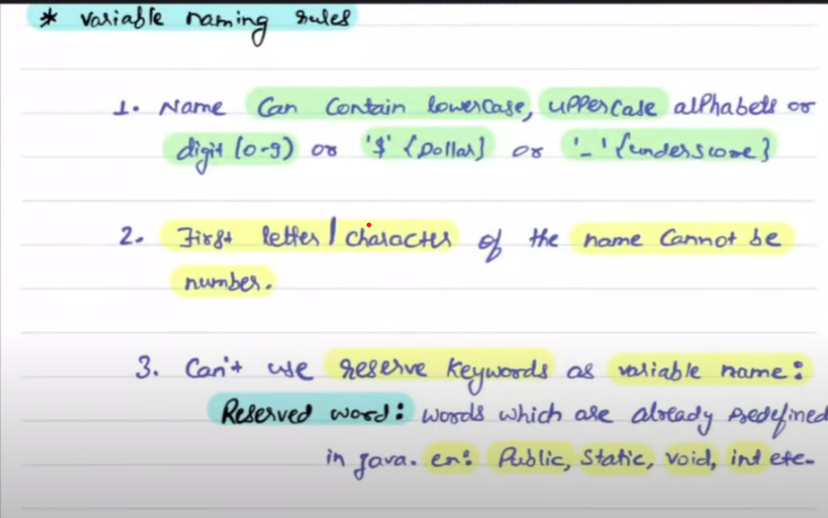 * Variable naming rules
1. Name Can Contain lowercase, uppercase alphabets or
digit (0-9) or '$' {Dollar} or '_' {underscore}
2. First letter/character of the name Cannot be
number.
3. Can't use reserve keywords as variable name:
Reserved word: words which are already predefined
in java. en: Public, Static, void, int etc-